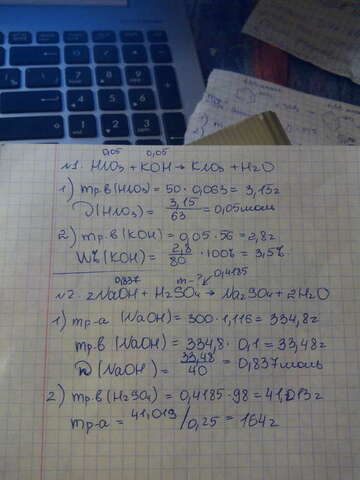 0,05 0,05
№1. HNO3 + KOH → KNO3 + H2O
1) mр.в (HNO3) = 50 · 0,063 = 3,15г
ν(HNO3) = 3,15/63 = 0,05моль
2) mр.в (KOH) = 0,05 · 56 = 2,8г
W% (KOH) = 2,8/80 · 100% = 3,5%
0,837 m-? 0,4185
№2. 2NaOH + H2SO4 → Na2SO4 + 2H2O
1) mр-а (NaOH) = 300 · 1,116 = 334,8г
mр.в (NaOH) = 334,8 · 0,1 = 33,48г
ν (NaOH) = 33,48/40 = 0,837моль
2) mр.в (H2SO4) = 0,4185 · 98 = 41,013г
mр-а = 41,013/0,25 = 164г